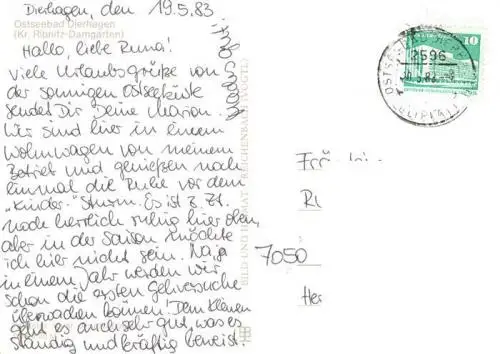 Dierhagen, den 19.5.83
Ostseebad Dierhagen
(Kr. Ribnitz-Damgarten)
Hallo, liebe Runa!
Viele Urlaubsgrüße von
der sonnigen Ostseeküste
sendet Dir Deine Marion.
Wir sind hier in einem
Wohnwagen von meinem
Betrieb und genießen noch
einmal die Ruhe vor dem
"Kinder-"Sturm. Es ist z. Zt.
noch herrlich ruhig hier oben,
aber in der Saison möchte
ich hier nicht sein. Na ja
in einem Jahr werden wir
schon die ersten Gehversuche
überwachen können! Dem Kleinen
geht es auch sehr gut, was es
ständig und kräftig beweist.
BILD UND HEIMAT REICHENBACH (VOGTL)
10
2596
OSTSEEBAD
7050